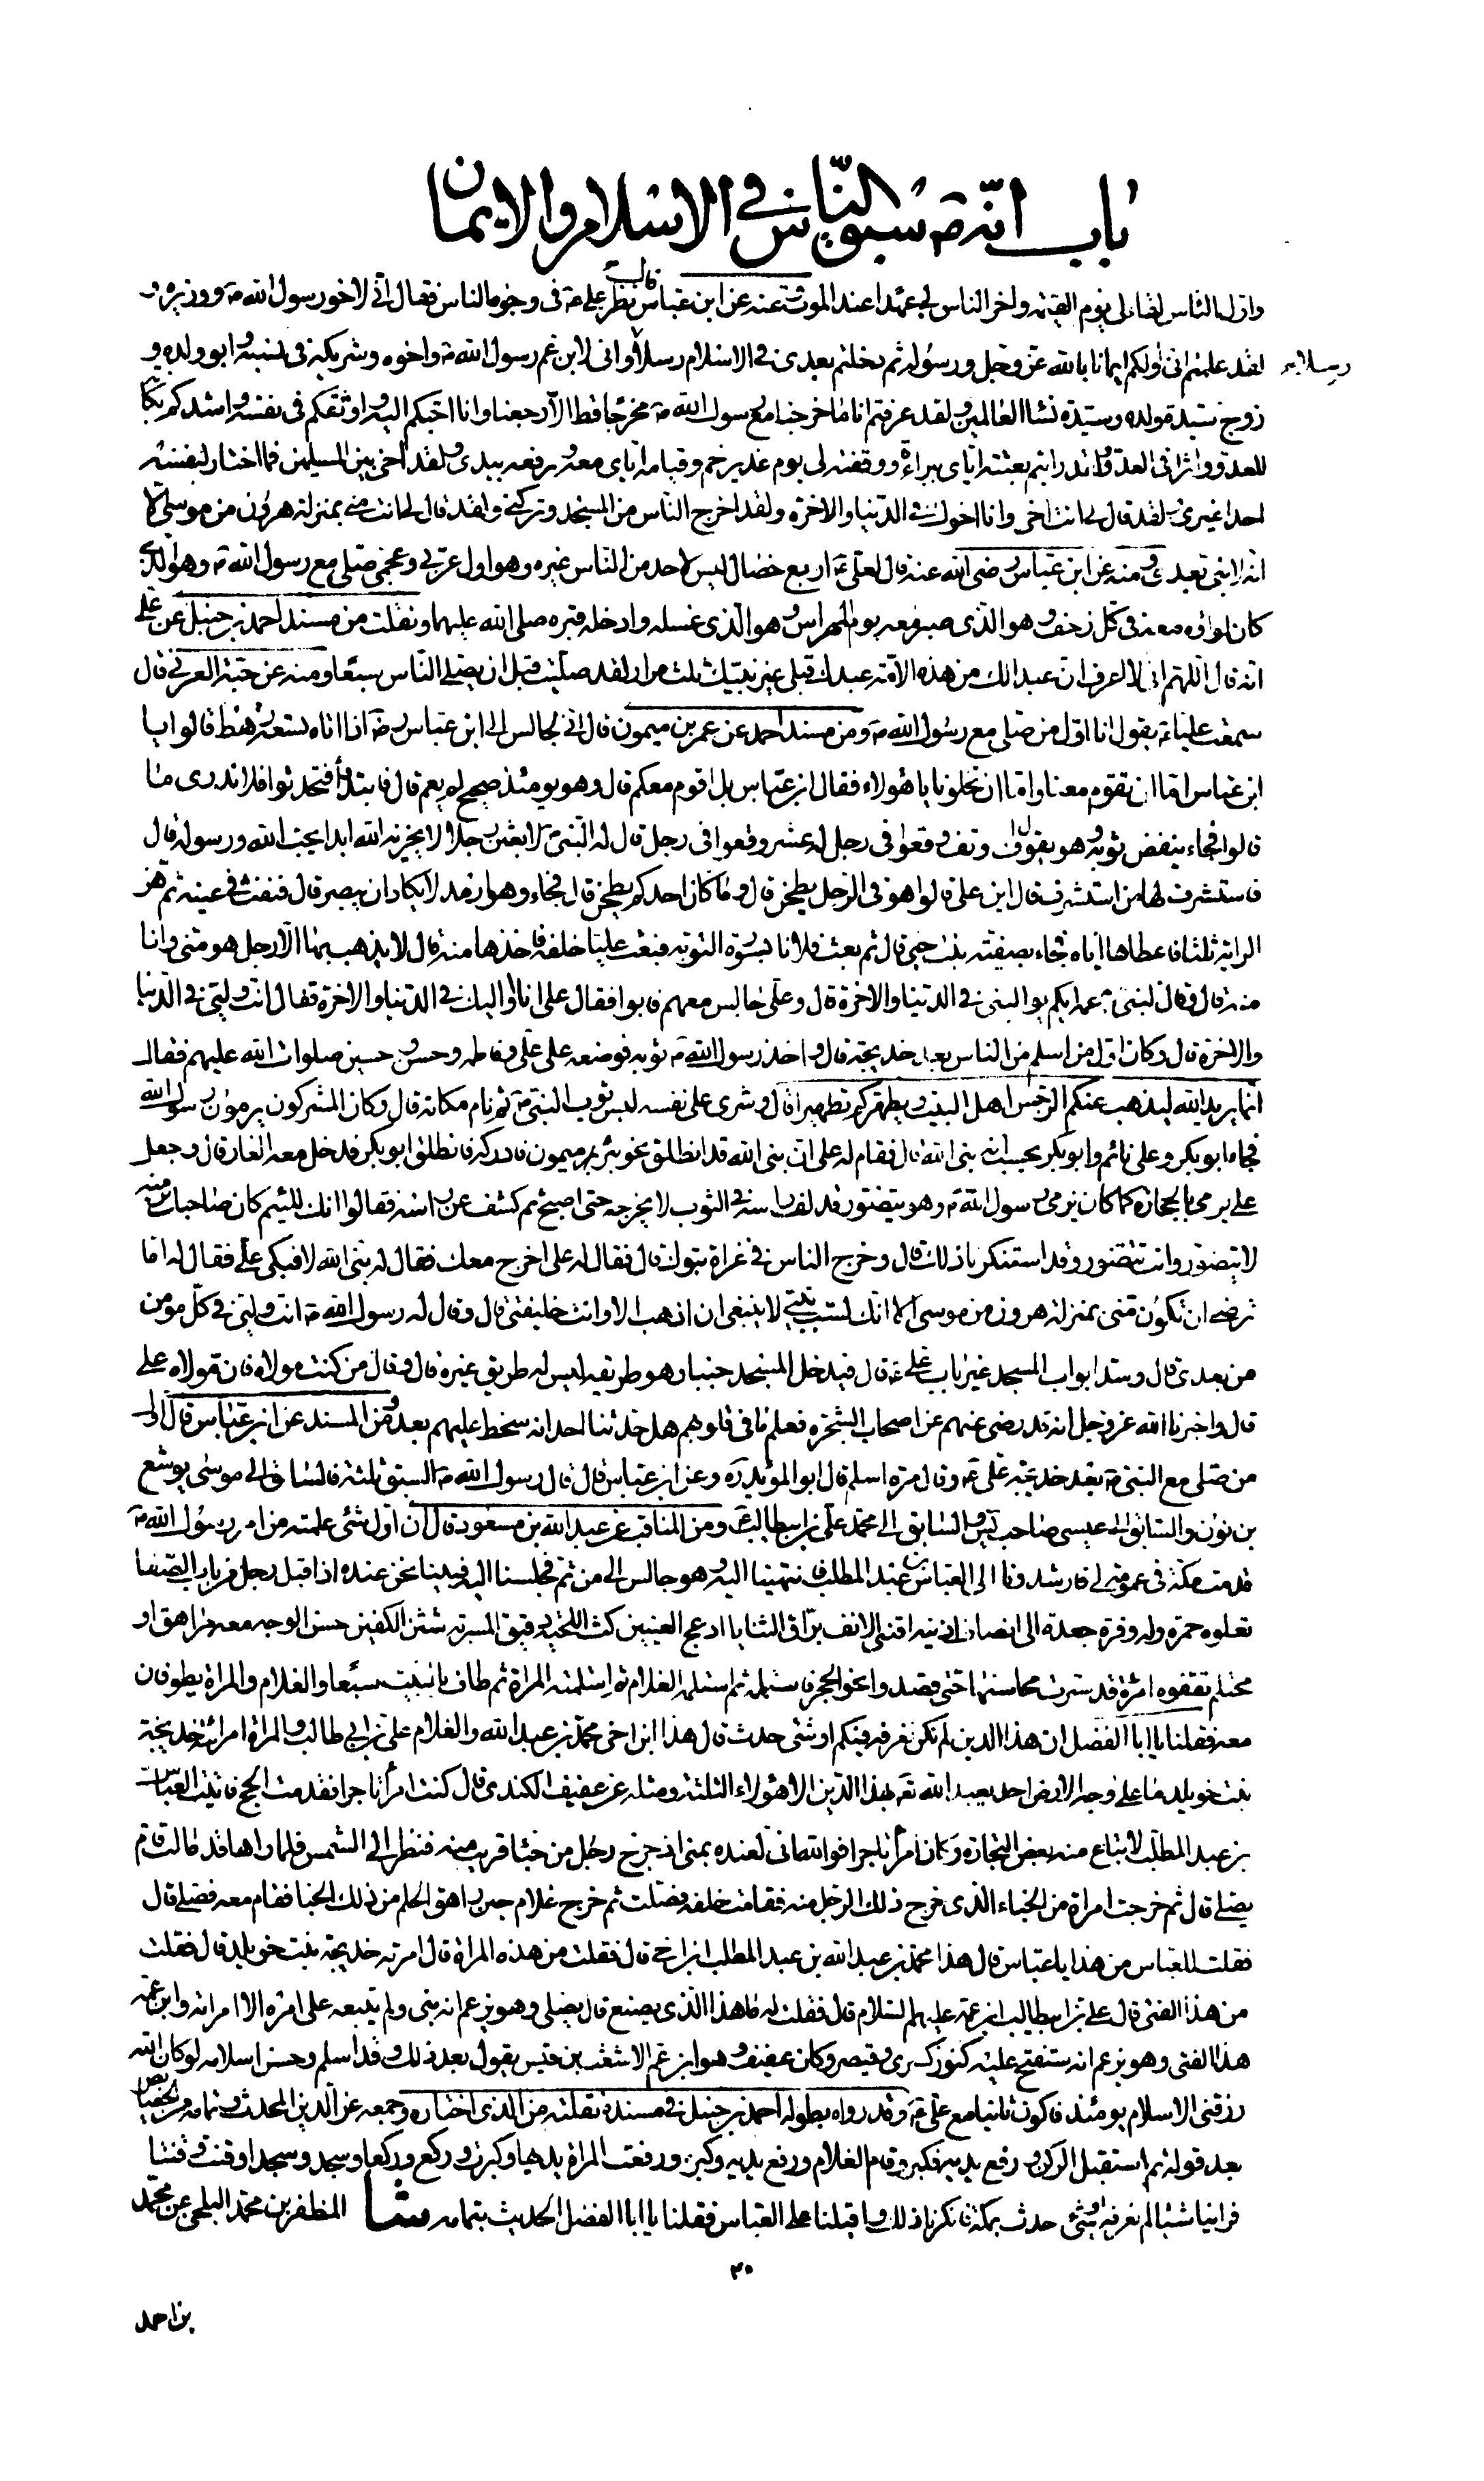 باب انّه ع سبق النّاس في الاسلام والايمان
واوّل الناس لقاء لى يوم القيمة واخر الناس لى عهدا عند الموت وعنه عن ابن عباس قال نظر علي ع فى وجوه الناس فقال انّى لاخو رسول الله ص ووزيره و
لقد علمتم انى اوّلكم ايمانا بالله عزّ وجل ورسوله ثم دخلتم بعدى فى الاسلام رسلا رسلا وانى لابن عم رسول الله ص واخوه وشريكه فى نسبه وابو ولده و
زوج سيّدة ولده وسيّدة نساء العالمين ولقد عرفتم انا ما خرجنا مع رسول الله ص مخرجا قط الّا رجعنا وانا احبّكم اليه واوثقكم فى نفسه واشدكم نكاية
للعدو واثرا فى العدو ولقد رايتم بعثته اياى ببراءة ووقفته لى يوم غدير خم وقيامه اياى معه ورفعه بيدى ولقد اخى بين المسلمين فما اختار لنفسه
احدا غيرى ولقد قال لى انت اخى وانا اخوك فى الدنيا والاخرة ولقد اخرج الناس من المسجد وتركنى ولقد قال لى انت منى بمنزلة هرون من موسى الا
انه لا نبىّ بعدى ومنه عن ابن عباس رضى الله عنه قال لعلى ع اربع خصال ليس لاحد من الناس غيره وهو اول عربى وعجمى صلى مع رسول الله ص وهو الّذى
كان لواؤه معه فى كل زحف وهو الّذى صبر معه يوم المهراس وهو الّذى غسله وادخله قبره صلى الله عليهما ونقلت من مسند احمد بن حنبل عن على
انه قال اللهم انى لا اعرف ان عبدا لك من هذه الامّة عبدك قبلى غير نبيّك ثلث مرار لقد صلّيت قبل ان يصلى الناس سبعا ومنه عن حبّة العرنى قال
سمعت عليا ع يقول انا اوّل من صلى مع رسول الله ص ومن مسند احمد عن عمر بن ميمون قال انى لجالس الى ابن عباس رض اذ اتاه تسعة رهط قالوا يا
ابن عباس اما ان تقوم معنا واما ان تخلونا يا هؤلاء فقال ابن عباس بل اقوم معكم قال وهو يومئذ صحيح لم يعم قال فابتدأوا فتحدثوا فلا ندرى ما
قالوا فجاء ينفض ثوبه وهو يقول اف وتف وقعوا فى رجل له عشر وقعوا فى رجل قال له النبى ص لابعثن رجلا لا يخزيه الله ابدا يحب الله ورسوله قال
فاستشرف لها من استشرف قال اين على قالوا هو فى الرحل يطحن قال وما كان احدكم يطحن قال فجاء وهو ارمد لا يكاد ان يبصر قال فنفث فى عينه ثم هز
الراية ثلثا فاعطاها اياه فجاء بصفية بنت حيى قال ثم بعث فلانا بسورة التوبة فبعث عليا خلفه فاخذها منه قال لا يذهب بها الّا رجل هو منى وانا
منه قال وقال لبنى عمه ايكم يوالينى فى الدنيا والاخرة قال وعلى جالس معهم فابوا فقال على انا اواليك فى الدنيا والاخرة فقال انت وليّى فى الدنيا
والاخرة قال وكان اوّل من اسلم من الناس بعد خديجة قال واخذ رسول الله ص ثوبه فوضعه على على وفاطمه وحسن وحسين صلوات الله عليهم فقال
انما يريد الله ليذهب عنكم الرجس اهل البيت ويطهركم تطهيرا قال وشرى على نفسه لبس ثوب النبى ص ثم نام مكانه قال وكان المشركون يرمون رسول الله
فجاء ابو بكر وعلى نائم وابو بكر يحسب انه نبى الله قال فقام له على ان نبى الله قد انطلق نحو بئر ميمون فادركه فانطلق ابو بكر فدخل معه الغار قال وجعل
على يرمى بالحجارة كما كان يرمى رسول الله ص وهو يتضوّر قد لف راسه فى الثوب لا يخرجه حتى اصبح ثم كشف عن راسه فقالوا انك للئيم كان صاحبك نرميه
لا يتضوّر وانت تتضوّر وقد استنكرنا ذلك قال وخرج الناس فى غزاة تبوك قال فقال له على اخرج معك فقال له نبى الله لا فبكى على فقال له اما
ترضى ان تكون منى بمنزلة هرون من موسى الا انك لست بنبى لا ينبغى ان اذهب الا وانت خليفتى قال وقال له رسول الله ص انت وليّى فى كل مومن
من بعدى قال وسد ابواب المسجد غير باب على ع قال فيدخل المسجد جنبا وهو طريقه ليس له طريق غيره قال وقال من كنت مولاه فان مولاه على
قال واخبرنا الله عز وجل انه قد رضى عنهم عن اصحاب الشجرة فعلم ما فى قلوبهم هل حدثنا احد انه سخط عليهم بعد ومن المسند عن ابن عباس قال اوّل
من صلى مع النبى ص بعد خديجة على ع وقال مرة اسلم قال ابو المؤيد ره وعن ابن عباس قال قال رسول الله ص السبق ثلثة فالسابق الى موسى يوشع
بن نون والسابق الى عيسى صاحب يس والسابق الى محمد على بن ابيطالب ع ومن المناقب عن عبد الله بن مسعود قال ان اول شئ علمته من امر رسول الله ص
قدمت مكة فى عمومة لى فارشدونا الى العباس بن عبد المطلب فانتهينا اليه وهو جالس الى من ثم فجلسنا اليه فبينا نحن عنده اذا قبل رجل من باب الصفا
تعلوه حمرة وله وفرة جعدة الى انصاف اذنيه اقنى الانف برّاق الثنايا ادعج العينين كث اللحية دقيق المسربة شثن الكفين حسن الوجه معه مراهق او
محتلم تقفوه امرأة قد سترت محاسنها حتى قصدوا نحو الحجر فاستلمه ثم استلمه الغلام ثم استلمته المراة ثم طاف بالبيت سبعا والغلام والمراة يطوفان
معه فقلنا يا ابا الفضل ان هذا الدين لم نكن نعرفه فيكم او شئ حدث قال هذا ابن اخى محمد بن عبد الله والغلام على بن ابى طالب والمراة امراته خديجة
بنت خويلد ما على وجه الارض احد يعبد الله تع بهذا الدين الا هؤلاء الثلثة ومثله عن عفيف الكندى قال كنت امرأ تاجرا فقدمت الحج فاتيت العباس
بن عبد المطلب لابتاع منه بعض التجارة وكان امرأ تاجرا فوالله انى لعنده بمنى اذ خرج رجل من خباء قريب منه فنظر الى الشمس فلما راها قد مالت قام
يصلى قال ثم خرجت امراة من الخباء الذى خرج ذلك الرجل منه فقامت خلفه فصلت ثم خرج غلام حين راهق الحلم من ذلك الخبا فقام معه فصلى قال
فقلت للعباس من هذا يا عباس قال هذا محمد بن عبد الله بن عبد المطلب ابن اخى قال فقلت من هذه المراة قال امرته خديجة بنت خويلد قال فقلت
من هذا الفتى قال على بن ابيطالب ابن عمه عليهم السلام قال فقلت له ما هذا الذى يصنع قال يصلى وهو يزعم انه نبى ولم يتبعه على امره الا امراته وابن عمه
هذا الفتى وهو يزعم انه ستفتح عليه كنوز كسرى وقيصر وكان عفيف وهو ابن عم الاشعث بن قيس يقول بعد ذلك وقد اسلم وحسن اسلامه لو كان الله
رزقنى الاسلام يومئذ فاكون ثانيا مع على ع وقد رواه بطوله احمد بن حنبل فى مسنده نقلته من الذى اختاره وجمعه عز الدين المحدث وتمامه من الخصايص
بعد قوله ثم استقبل الركن ورفع يديه فكبر وقام الغلام ورفع يديه وكبر ورفعت المراة يديها وكبرت وركع وركعا وسجد وسجدا وقنت وقنتا
فراينا شيئا لم نعرفه او شئ حدث بمكة فانكرنا ذلك واقبلنا على العباس فقلنا يا ابا الفضل الحديث بتمامه شا المظفر بن محمد البلخى عن محمد
٢٠
بن احمد